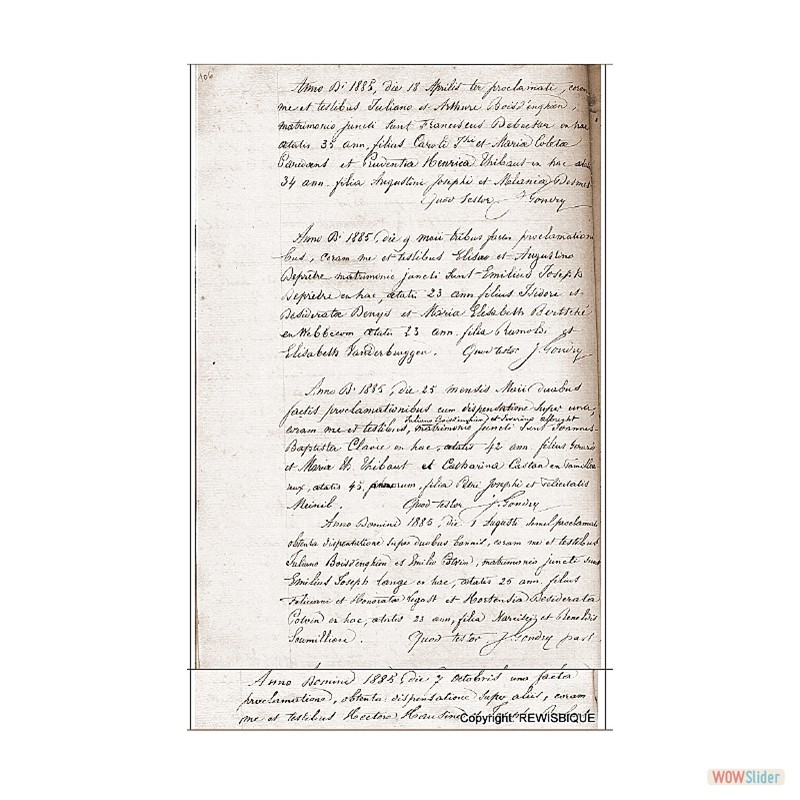 106
Anno Di 1885, die 18 Aprilis ter proclamati, coram
me et testibus Juliano et Arthuro Boisd'enghien,
matrimonio juncti sunt Franciscus Debecker en hac
ætatis 35 ann, filius Caroli et Maria Coleta
et Prudentia Henrica Thibaut en hac ætat
34 ann. filia Augustini Josephi et Melania Desmet
Quod testor J. Gondry
Anno Di 1885, die 9 maii tribus factis proclamation
bus, coram me et testibus Elisæo et Augustino
Depretre matrimonio juncti sunt Emilius Joseph
Depretre en hac, ætatis 23 ann filius Isidore et
Desiderata Denys et Maria Elisabeth Bertsché
en Webbecom ætatis 23 ann. filia Rumoldi et
Elisabeth Vanderbruggen. Quod testor J. Gondry
Anno Di 1885, die 25 mensis Maii duabus
factis proclamationibus cum dispensatione super una,
Juliano Boisd'enghien et Severino
coram me et testibus, matrimonio juncti sunt Joannes-
Baptista Clavie en hac, ætatis 42 ann filius
et Maria Th. Thibaut et Catharina Castan en
aux, ætatis 45 annorum, filia Petri Josephi et Felicitatis
Meinil. Quod testor J. Gondry
Anno Domini 1885, die 1 Augusti semel proclamati
obtenta dispensatione super duobus bannis, coram me et testibus
Juliano Boisd'enghien et Emilio Potvin, matrimonio juncti sunt
Emilius Joseph Lange en hac, ætatis 25 ann. filius
Feliciani et Honorata Legast et Hortensia Desiderata
Potvin en hac, ætatis 23 ann, filia Narcisi et Benoldis
Soumillion. Quod testor J. Gondry past
Anno Domini 1885, die 7 octobris una facta
proclamatione, obtenta dispensatione super aliis, coram
me et testibus Hectore
Copyright: REWISBIQUE
WOWSlider